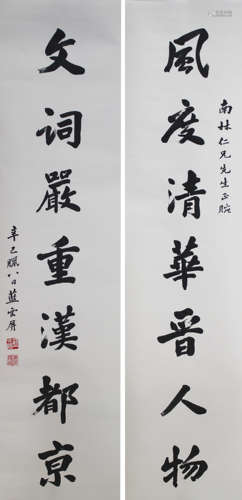 南林仁兄先生正腕
風度清華晉人物
文詞嚴重漢都京
辛巳臘八日藍雲屏